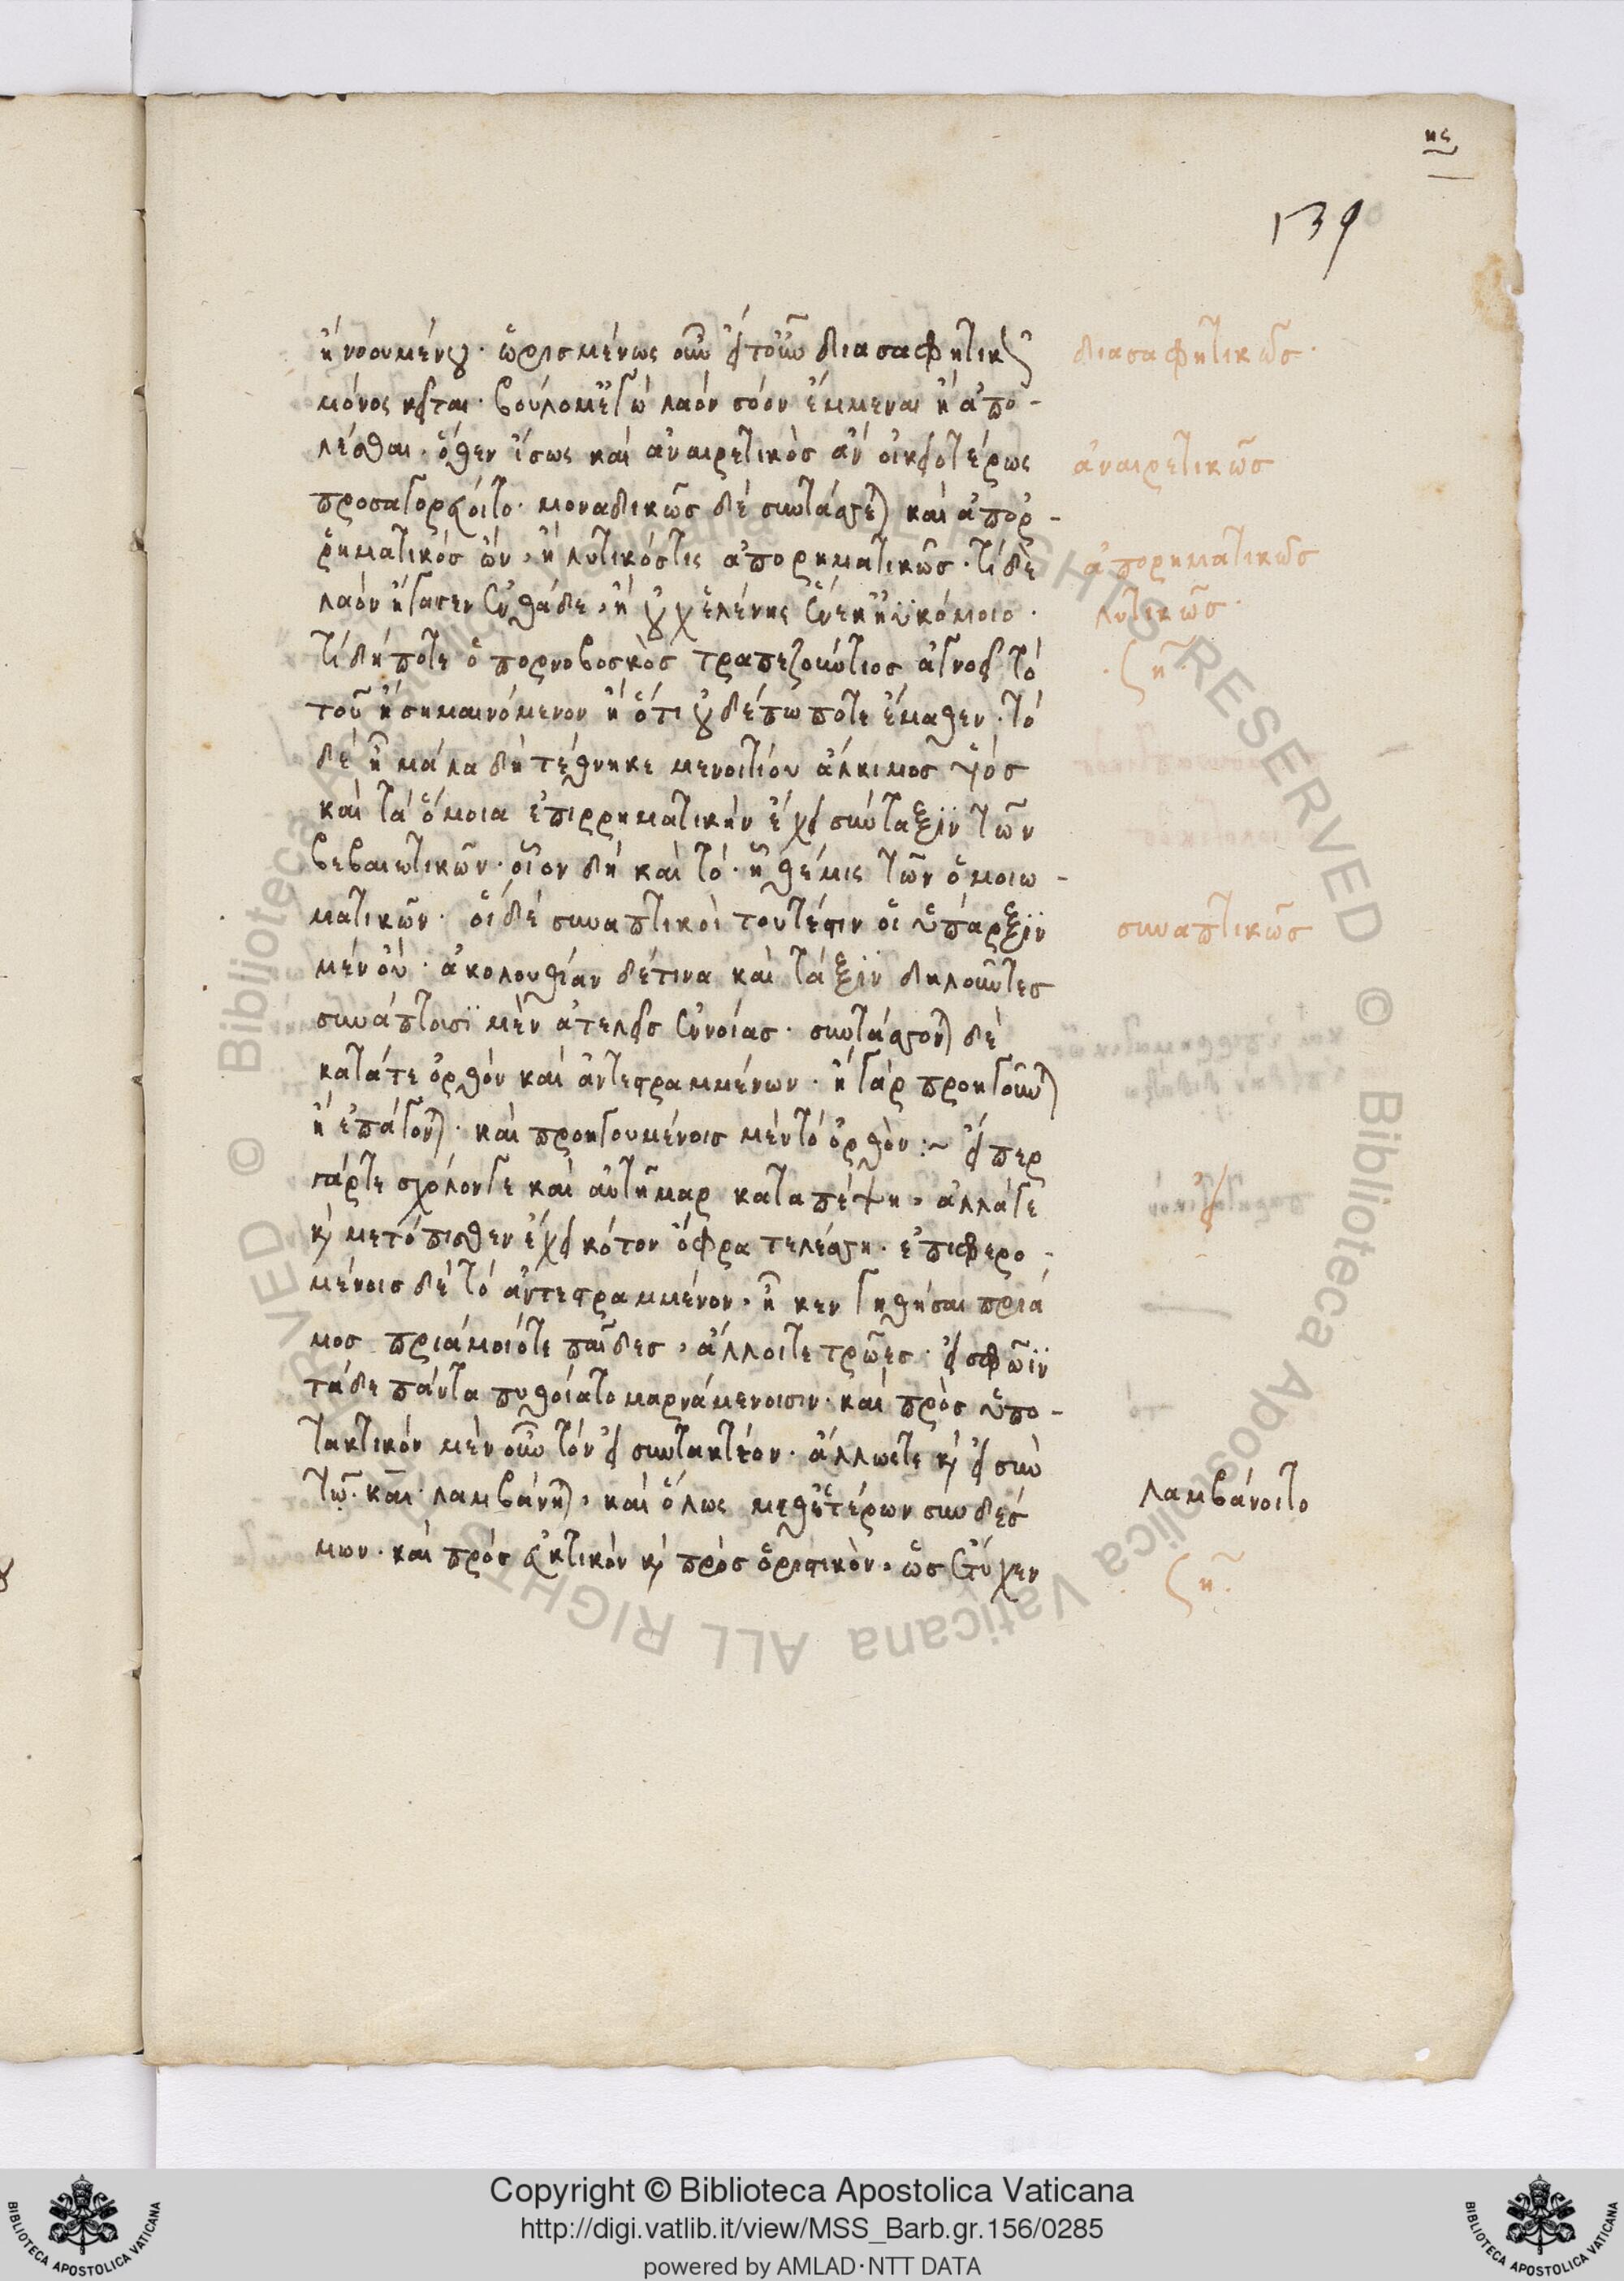 ης
139
ἢ νοουμένου· ὡρισμένως οὖν εἰ τοῦν διασαφητικῶς
μόνος κεῖται· βούλομ' ἐγὼ λαὸν σόον ἔμμεναι ἢ ἀπο-
λέσθαι· ὅθεν ἴσως καὶ ἀναιρετικὸς ἂν οἰκειοτέρως
προσαγορεύοιτο· μοναδικῶς δὲ συντάσσεται καὶ ἀπορ-
ρηματικὸς ὢν, ἢ λυτικός τις ἀπορηματικῶς· τί δὲ
λαὸν ἤγαγεν ἐνθάδε, ἢ οὐχ ἑλένης ἕνεκ' ἠϋκόμοιο·
τί δήποτε ὁ πορνοβοσκὸς τραπεζούντιος ἀγνοεῖ τὸ
τοῦ ἢ σημαινόμενον ἢ ὅτι οὐδέπω ποτε ἔμαθεν· τὸ
δὲ ἦ μάλα δὴ τέθνηκε μενοιτίου ἄλκιμος υἱός
καὶ τὰ ὅμοια ἐπιρρηματικὴν ἔχει σύνταξιν τῶν
βεβαιωτικῶν· οἷον δὴ καὶ τό· ἣ θέμις τῶν ὁμοιω-
ματικῶν· οἱ δὲ συναπτικοὶ τουτέστιν οἱ ὕπαρξιν
μὲν οὐ· ἀκολουθίαν δέ τινα καὶ τάξιν δηλοῦντες
συνάπτουσι μὲν ἀτελεῖς ἐννοίας· συντάσσονται δὲ
κατά τε ὀρθὸν καὶ ἀντεστραμμένων· ἢ γὰρ προηγοῦνται
ἢ ἐπάγονται· καὶ προηγουμένοις μὲν τὸ ὀρθὸν :~ εἴπερ
γάρ τε χόλον γε καὶ αὐτῆμαρ καταπέψη, ἀλλά γε
καὶ μετόπισθεν ἔχει κότον ὄφρα τελέσση· ἐπιφερο-
μένοις δὲ τὸ ἀντεστραμμένον, ἦ κεν γηθήσαι πρία
μος πριάμοιό τε παῖδες, ἄλλοι τε τρῶες· εἰ σφῶιν
τάδε πάντα πυθοίατο μαρναμένοισιν· καὶ πρὸς ὑπο-
τακτικὸν μὲν οὖν τὸν εἰ συντακτέον· ἄλλως τε καὶ εἰ σὺν
τῷ· καὶ· λαμβάνηται, καὶ ὅλως μεθ' ἑτέρων συνδέσ
μων· καὶ πρὸς εὐκτικὸν καὶ πρὸς ὁριστικὸν, ὡς ἔτυχεν
διασαφητικῶς·
ἀναιρετικῶς
ἀπορηματικῶς
λυτικῶς·
ζη
συναπτικῶς
εἰ
λαμβάνοιτο
ζη
© Biblioteca Apostolica Vaticana ALL RIGHTS RESERVED
© Biblioteca Apostolica Vaticana ALL RIGHTS RESERVED
BIBLIOTECA APOSTOLICA VATICANA
Copyright © Biblioteca Apostolica Vaticana
http://digi.vatlib.it/view/MSS_Barb.gr.156/0285
powered by AMLAD·NTT DATA
BIBLIOTECA APOSTOLICA VATICANA